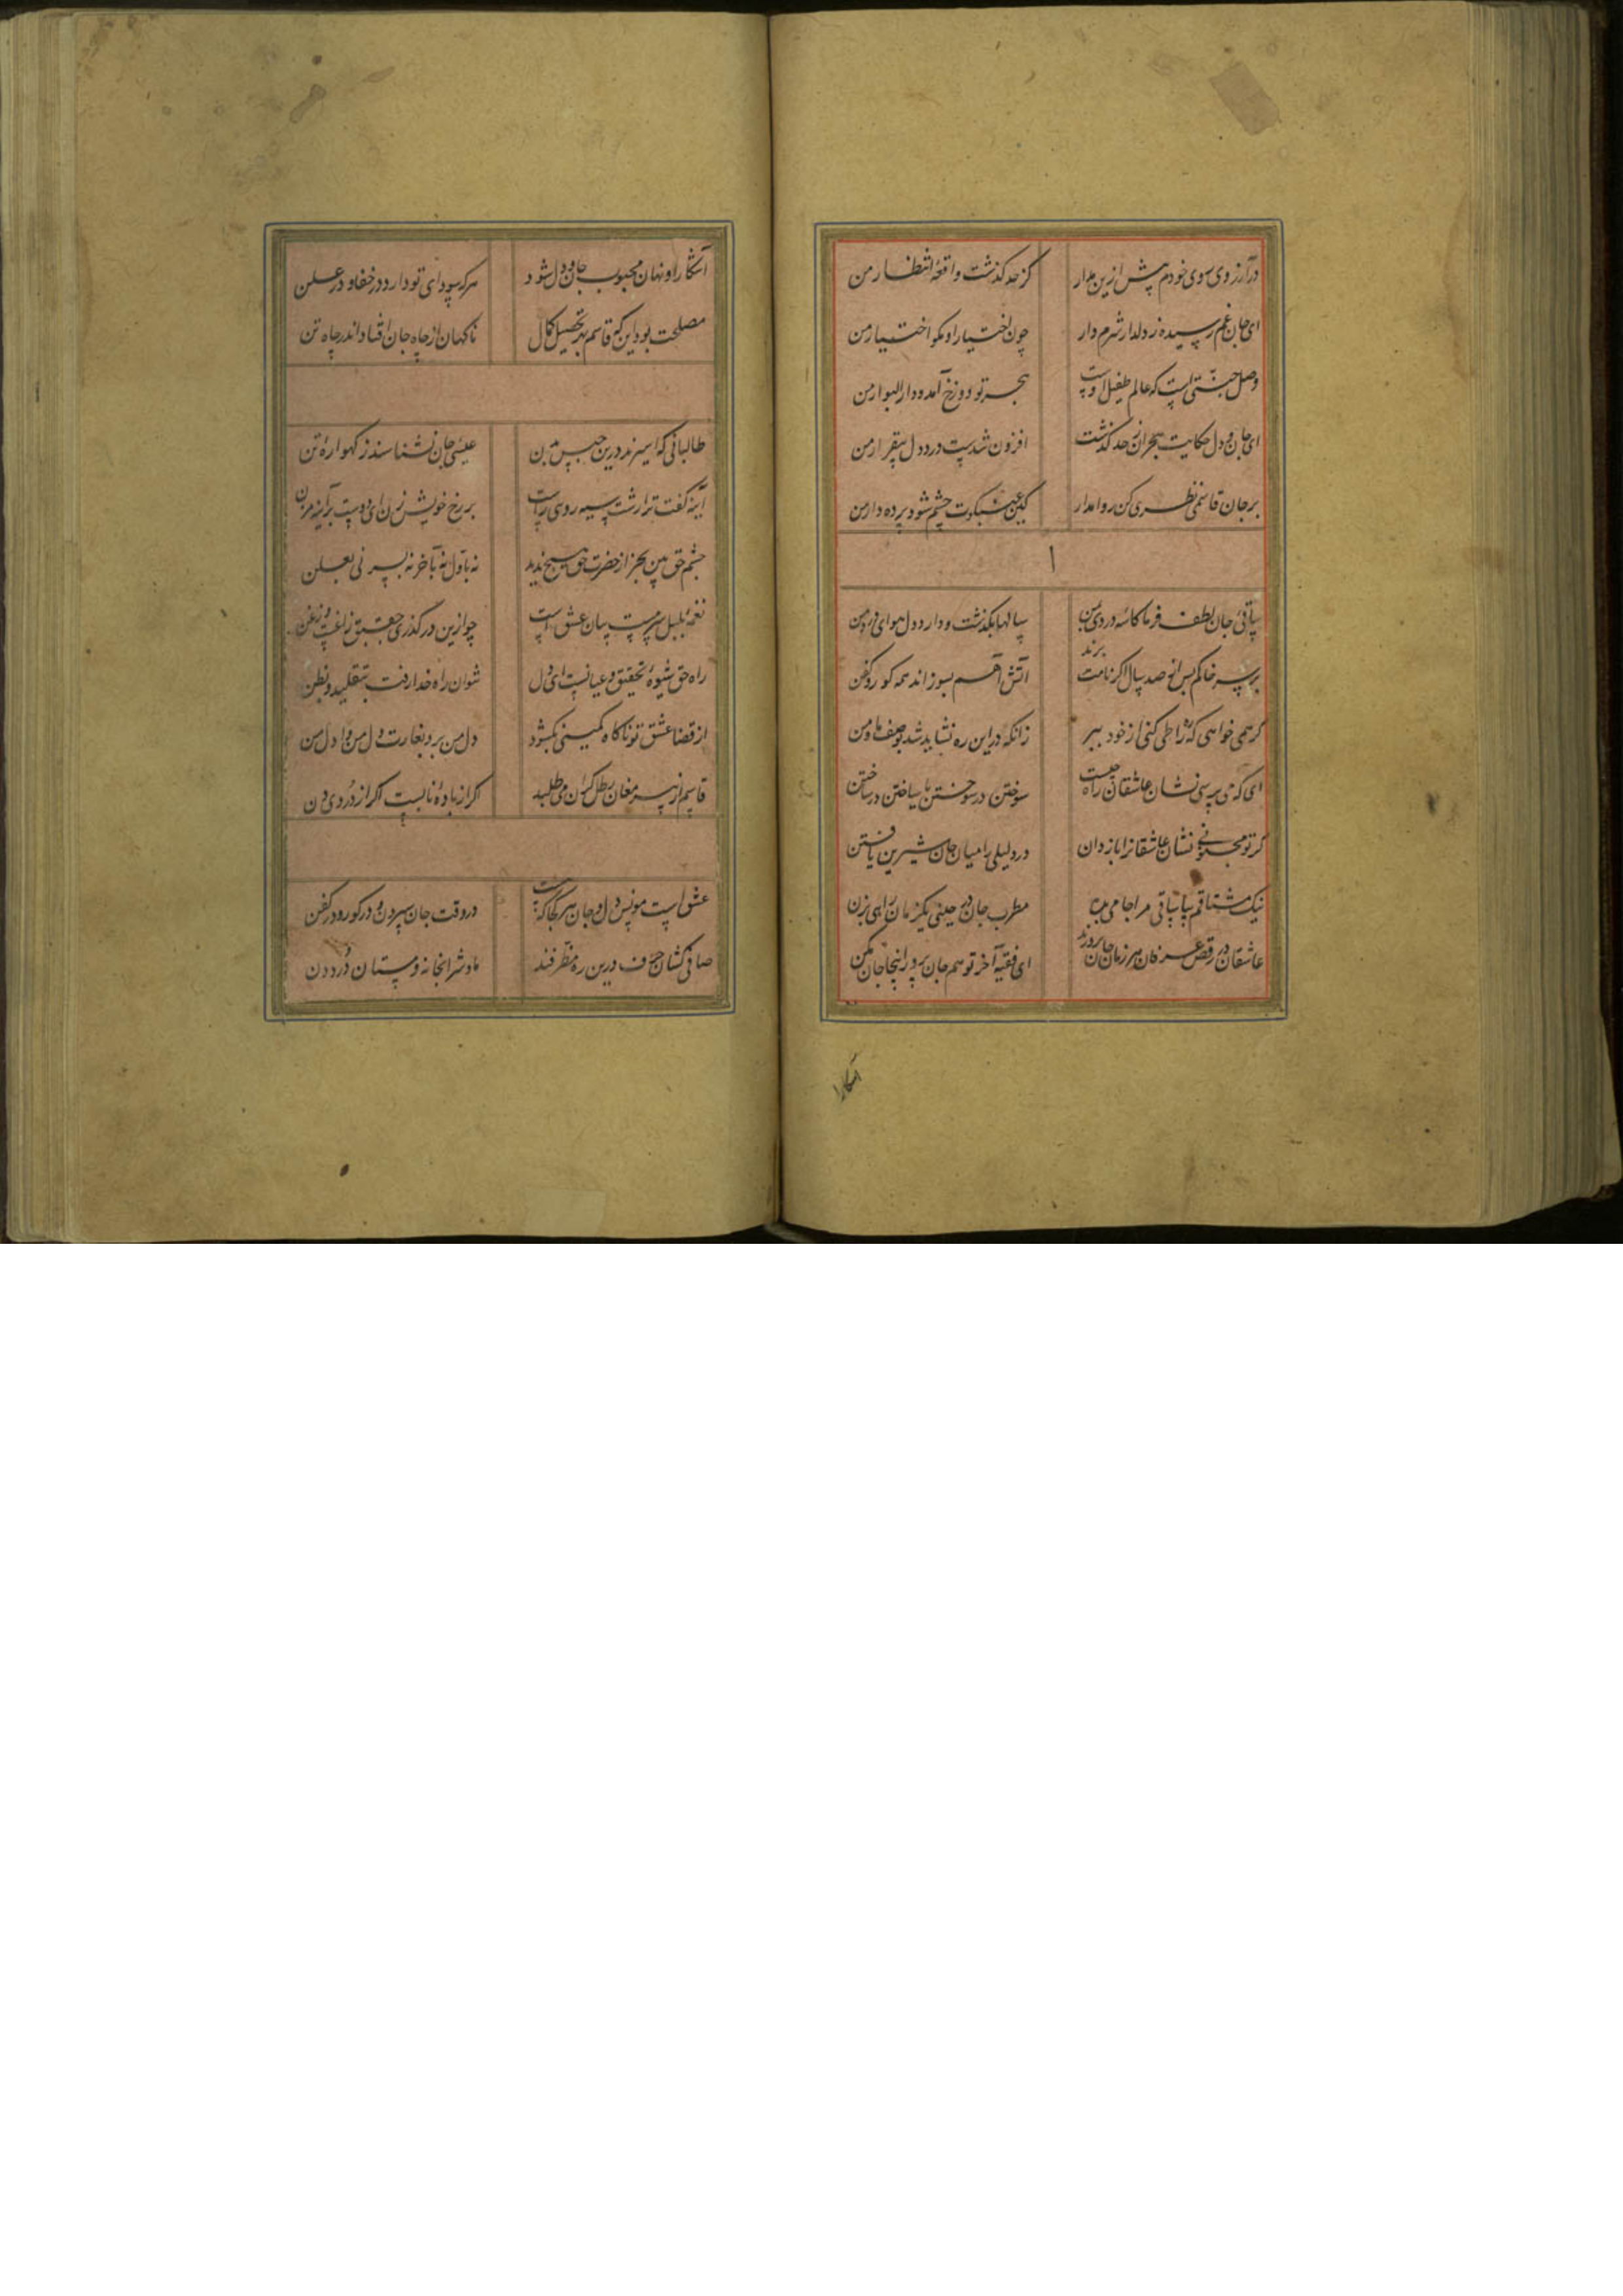 در آرزوی سوی خودم پیش ازین مدار کز حد گذشت واقعهٔ انتظار من
ای جان غم رسیده ز دلدار شرم دار چون اختیار او مکو اختیار من
وصل جنتی است که عالم طفیل اوست هجر تو دوزخ آمد و دار البوار من
ای جان و دل حکایت هجران ز حد گذشت افزون شدست درد دل بیقرار من
بر جان قاسمی نظری کن روا مدار کین عین شبکوت چشم شود پرده دار من
ا
ساقی جان لطف فرما کاسه دردی بمن سالها بگذشت و دارد دل هوای
بر سر خاکم پس از صد سال اگر نامت برند آتش آهم بسوزاند همه کور و کفن
گر همی خواهی که راه طی کنی از خود ببر زانکه در این ره نشاید شد بوصف ما و من
ای که می پرسی نشان عاشقان راه چیست سوختن در سوختن با ساختن در ساختن
گر تو مجنونی نشان عاشقانرا باز دان درد لیلی را میان جان شیرین یافتن
نیک مشتاقم بیا ساقی مرا جامی بده مطرب جان در چنین یکزمان راهی بزن
عاشقان در رقص عرفان هر زمان جان پرورند ای فقیه آخر تو هم جان پرور اینجا جان مکن
آشکارا
آشکارا و نهان محبوب جان و دل شود هر که سودای تو دارد در خفا و در علن
مصلحت بود این که قاسم بهر تحصیل کمال ناگهان از جاه جان افتاد اندر چاه تن
طالبانی که اسیرند درین حبس بدن عیسی جان نشناسند ز گهوارهٔ تن
آینه گفت ترا زشت سیه روی راست بر رخ خویش زن ای دوست بر آینه مزن
چشم حق بین بجز از حضرت حق هیچ ندید نه باول نه بآخر نه بسر نی بعلن
نغمهٔ بلبل سرمست بیان عشق است چو ازین درگذری جعبق زاغست و زغن
راه حق شیوهٔ تحقیق و عیانست ای دل نتوان راه خدا رفت بتقلید و بظن
از قضا عشق تو ناگاه کمینی بگشود دل من برد بغارت دل من وا دل من
قاسم از پیر مغان رطل گران می طلبد اگر از بادهٔ نابست اگر از دردی دن
عشق است مونس دل و جان هر کجا که هست در وقت جان سپردن و در کور و در کفن
صافی کشان حرف درین ره مظفرند مادشرابخانه و مستان درد دن